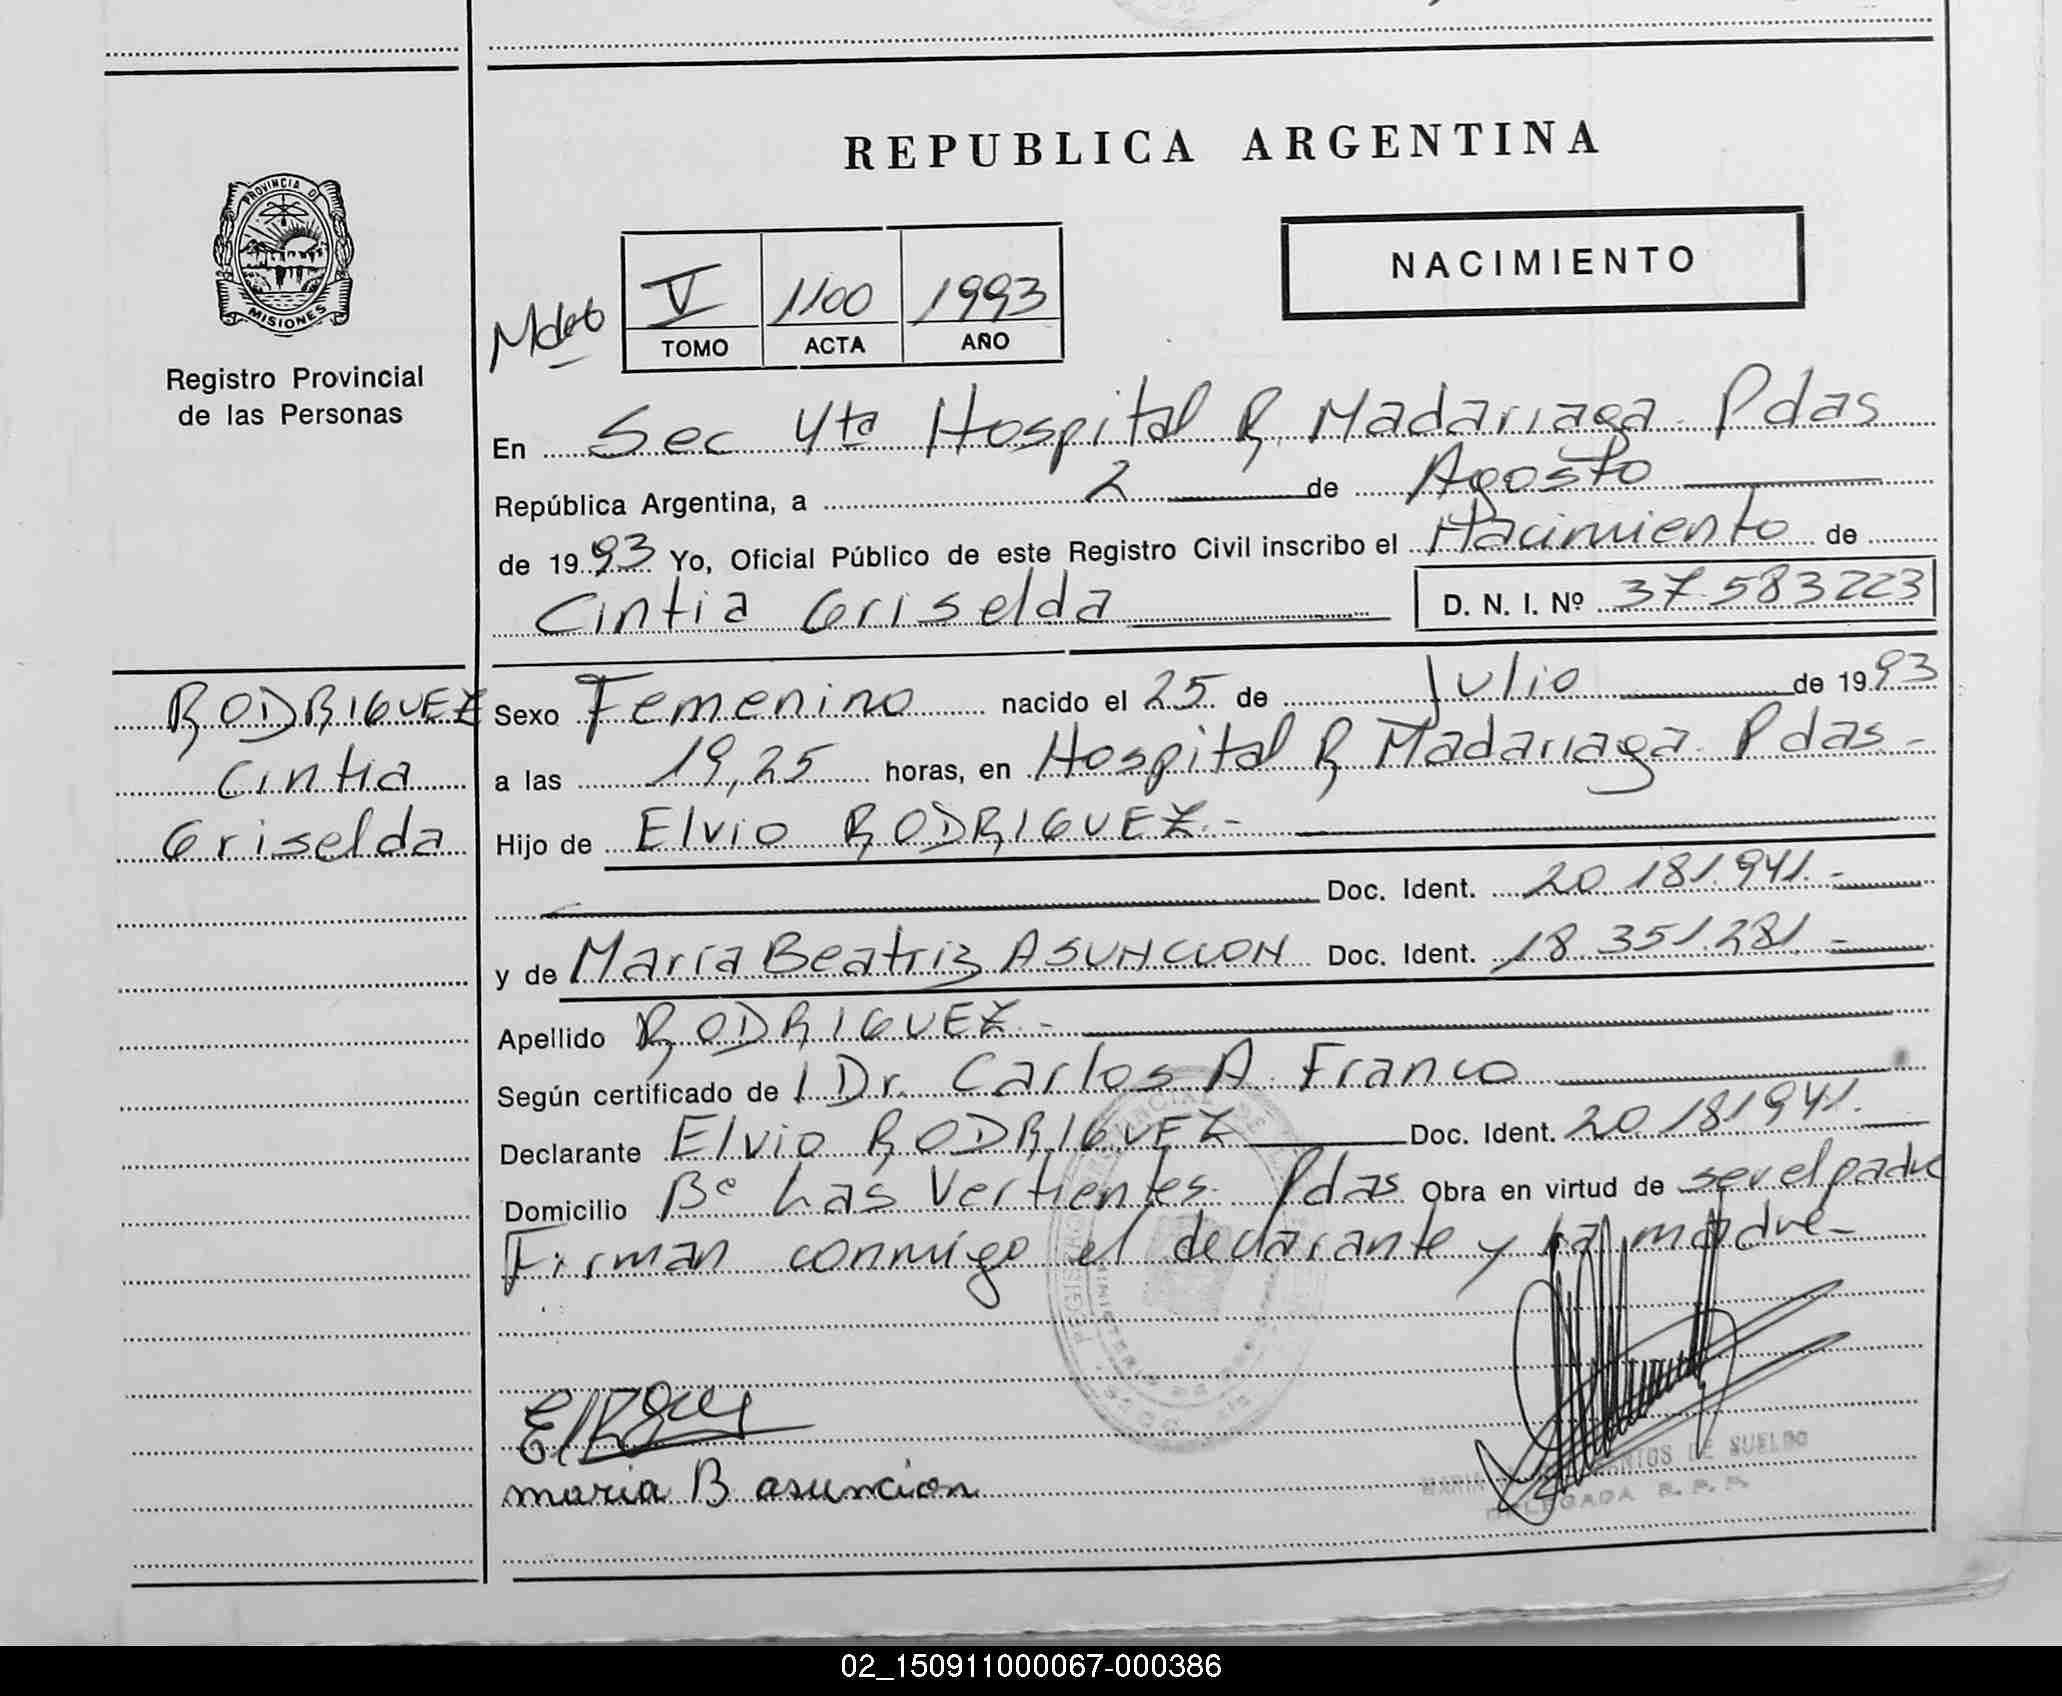 REPUBLICA ARGENTINA
PROVINCIA D
MISIONES
Registro Provincial
de las Personas
NACIMIENTO
V 1100 1993
TOMO ACTA AÑO
En Sec 4ta Hospital R. Madariaga. Pdas
República Argentina, a 2 de Agosto
de 1993 Yo, Oficial Público de este Registro Civil inscribo el Nacimiento de
Cintia Griselda D. N. I. Nº 37.583223
RODRIGUEZ
Cintia
Griselda
Sexo Femenino nacido el 25 de Julio de 1993
a las 19,25 horas, en Hospital R Madariaga. Pdas.-
Hijo de Elvio RODRIGUEZ.-
Doc. Ident. 20 181.941.-
y de María Beatriz ASUNCION Doc. Ident. 18 351.281.-
Apellido RODRIGUEZ.-
Según certificado de l Dr. Carlos A. Franco
Declarante Elvio RODRIGUEZ Doc. Ident. 20 181941.
Domicilio Bº Las Vertientes. Pdas Obra en virtud de ser el padre
Firman conmigo el declarante y la madre-
maria B asuncion
MARIA DE SUELDO
DELEGADA R. P. P.
02_150911000067-000386